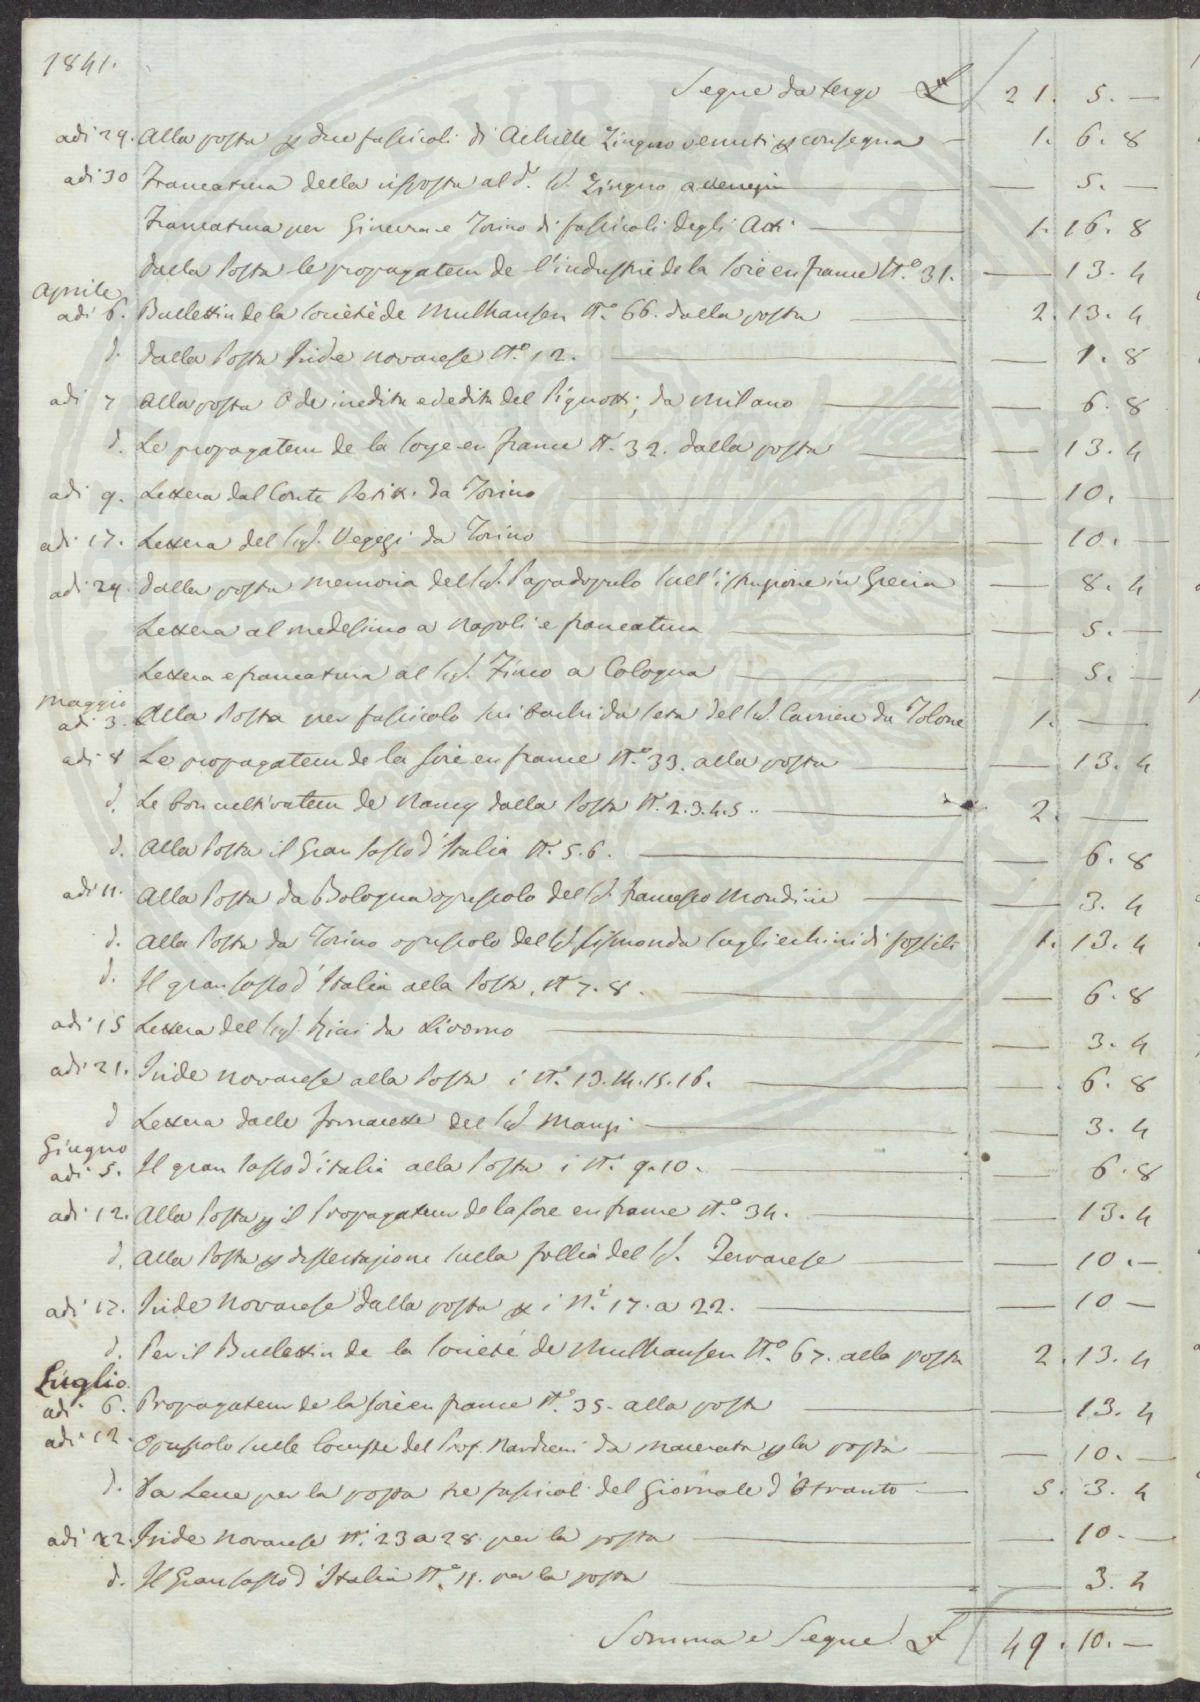 1841.
Segue da tergo £ 21. 5. —
adi 29. Alla posta p due fascicoli di Achille Zingno venuti p consegna — 1. 6. 8
adi 30 Francatura della risposta al d.º S.r Zingno a Venezia — — 5. —
Francatura per Ginevra e Torino di fascicoli degli Atti — 1. 16. 8
Dalla Posta le propagateur de l'industrie de la soie en france N.º 31. — 13. 4
Aprile
adi 6. Bullettin de la Societè de Mulhausen N.º 66. dalla posta — 2. 13. 4
d. Dalla Posta Iride Novarese N.º 12. — — 1. 8
adi 7 Alla posta Ode inedita ed edita del Pignotti; da Milano — — 6. 8
d. Le propagateur de la soye en france N. 32. dalla posta — — 13. 4
adi 9. Lettera dal Conte Petitti da Torino — — 10. —
adi 17. Lettera del Sig. Vegezi da Torino — — 10. —
adi 24. Dalla posta memoria del S.r Papadopulo sull'istruzione in Grecia — 8. 4
Lettera al medesimo a Napoli e francatura — — 5. —
Lettera e francatura al Sig. Finco a Cologna — — 5. —
Maggio
adi 3. Alla Posta per fascicolo sui bachi da seta del S.r Carriere da Tolone 1. —
adi 8 Le propagateur de la soie en france N.º 33. alla posta — — 13. 4
d. Le bon cultivateur de Nancy dalla Posta N. 2. 3. 4. 5.. — 2. —
d. Alla Posta il Gran Sasso d'Italia N. 5. 6. — — 6. 8
adi 11. Alla Posta da Bologna opuscolo del S.r Francesco Mondini — — 3. 4
d. Alla Posta da Torino opuscolo del S.r Sismonda sugli echinidi fossili 1. 13. 4
d. Il gran Sasso d'Italia alla Posta. N. 7. 8. — — 6. 8
adi 15 Lettera del Sig. Ricci da Livorno — — 3. 4
adi 21. Iride Novarese alla Posta i N. 13. 14. 15. 16. — . 6. 8
d Lettera dalle fornacette del S.r Mangi — — 3. 4
Giugno
adi 5. Il gran Sasso d'italia alla Posta i N. 9. 10. — 6. 8
adi 12. Alla Posta p il Propagateur de la soie en france N.º 34. — — 13. 4
d. Alla Posta p dissertazione sulla follia del S.r Fervarese — — 10. —
adi 17. Iride Novarese dalla posta p i N.i 17. a 22. — — 10 —
d. Per il Bullettin de la Societé de Mulhausen N.º 67. alla posta 2. 13. 4
Luglio.
adi 6. Propagateur de la soie en france N.º 35. alla posta — — 13. 4
adi 12. Opuscolo sulle locuste del Prof. Nardieri da Macerata p la posta — — 10. —
d. Da Lecce per la posta tre fascicoli del Giornale d'Otranto — 5. 3. 4
adi 22. Iride Novarese N. 23 a 28. per la posta — — 10. —
d. Il Gran Sasso d'Italia N.º 11. per la posta — — 3. 4
Somma e Segue £ 49. 10. —